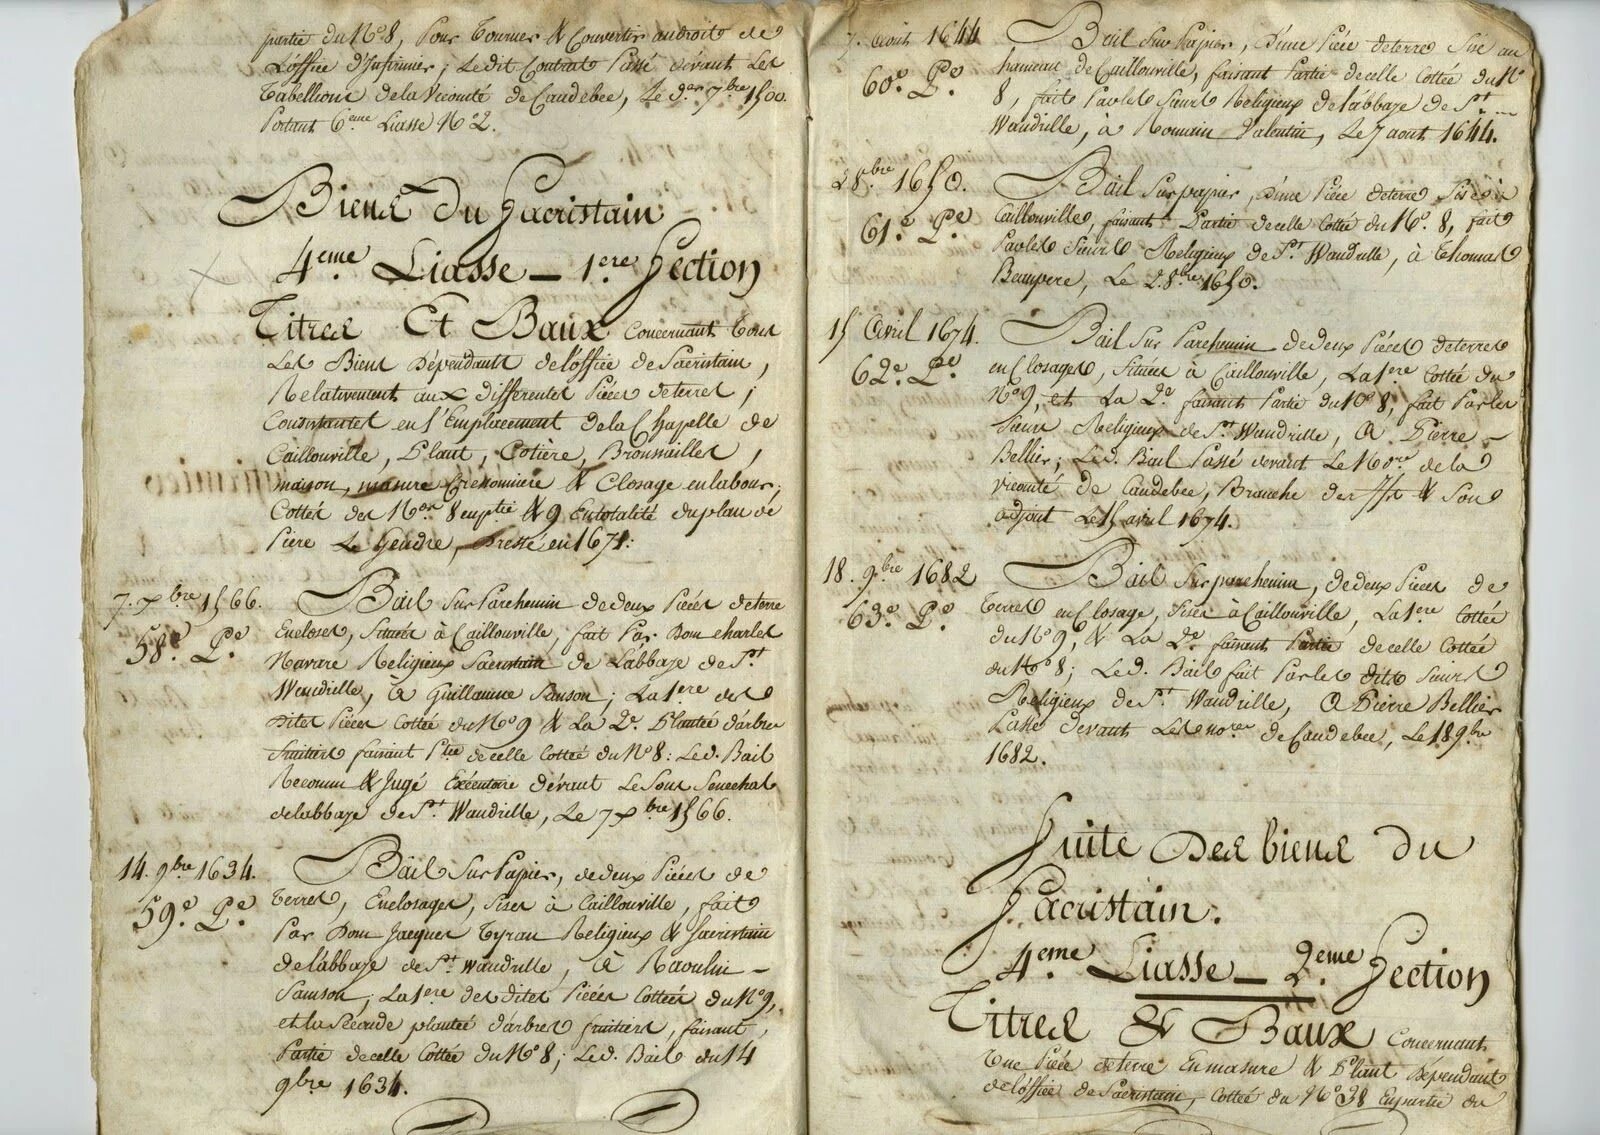 partie du N.º 8, Pour Tourner & Convertir au droit de
L'office d'Infirmier; Le dit Contrat Passé dévant Les
Tabellions de la Vicomté de Caudebec, Le der 7.bre 1500.
Portant 6.eme Liasse N.º 2.
Biens du Sacristain
4.eme Liasse — 1.ere Section
Titres Et Baux Concernant Tous
Les Biens Dépendants de l'office de Sacristain,
Relativement aux differentes Piéces de terres;
Consistantes en l'Emplacement de la Chapelle de
Caillouville, Plant, Cotière, Brousailles,
maison, masure Cressonniere & Closage en labour;
Cottés des N.os 8 en ptie & 9 En totalité du plan de
Piere Le Gendre, Dressé en 1671:
7. Xbre 1566.
58.e P.e
Bail Sur Parchemin de deux Piéces de terre
Encloses, Situées à Caillouville, fait Par Dom charles
Navare Religieux Sacristain de L'abbaye de S.t
Wandrille, à Guillaume Sanson; La 1.ere des
Dites Piéces Cottée du N.º 9 & La 2.e Plantée d'arbres
fruitiers faisant P.tie de celle Cottée du N.º 8: Led. Bail
Reconnu & Jugé Exécutoire dévant Le Sous Senechal
de l'abbaye de S.t Wandrille, Le 7 Xbre 1566.
14. 9bre 1634.
59.e P.e
Bail Sur Papier, de deux Piéces de
Terres, Enclosages, Sises à Caillouville, fait
Par Dom Jacques Tyran Religieux & Sacristain
de l'abbaye de S.t Wandrille, à Raoulin —
Samson; La 1.ere des dites Piéces Cottée du N.º 9,
et la Seconde plantée d'arbres fruitiers, faisant
Partie de celle Cottée du N.º 8; Led. Bail du 14
9bre 1634.
7. Août 1644
60.e P.e
Bail Sur Papier, D'une Piéce de terre Sise au
hameau de Caillouville, faisant Partie de celle Cottée du N.º
8, fait Par les Sieurs Religieux de l'abbaye de S.t
Wandrille, à Romain Valentin, Le 7 aout 1644.
2 8.bre 1650.
61.e P.e
Bail Sur papier, D'une Piéce de terre Sise à
Caillouville, faisant Partie de celle Cottée du N.º 8, fait
Par les Sieurs Religieux de S.t Wandrille, à Thomas
Beaupere, Le 2. 8.bre 1650.
15 Avril 1674.
62.e P.e
Bail Sur Parchemin de deux Piéces de terres
en Closages, Situées à Caillouville, La 1.ere Cottée du
N.º 9, et La 2.e faisant Partie du N.º 8, fait Par les
Sieurs Religieux de S.t Wandrille, A Pierre —
Bellier; Led. Bail Passé devant Le de la
vicomté de Caudebec, Branche des & Son
adjoint Le 15 avril 1674.
18. 9bre 1682
63.e P.e
Bail Sur parchemin, de deux Pieces de
Terres en Closage, Sises à Caillouville, La 1.ere Cottée
du N.º 9, & La 2.e faisant Partie de celle Cottée
du N.º 8; Led. Bail fait Par les dits Sieurs
Religieux de S.t Wandrille, A Pierre Bellier
Passé devant Les no.res de Caudebec, Le 18 9bre
1682.
Suite Des biens du
Sacristain.
4.eme Liasse — 2.eme Section
Titres & Baux Concernant
Une Piéce de terre En masure & Plant Dépendant
de l'office de Sacristain, Cottée du N.º 38 En partie du